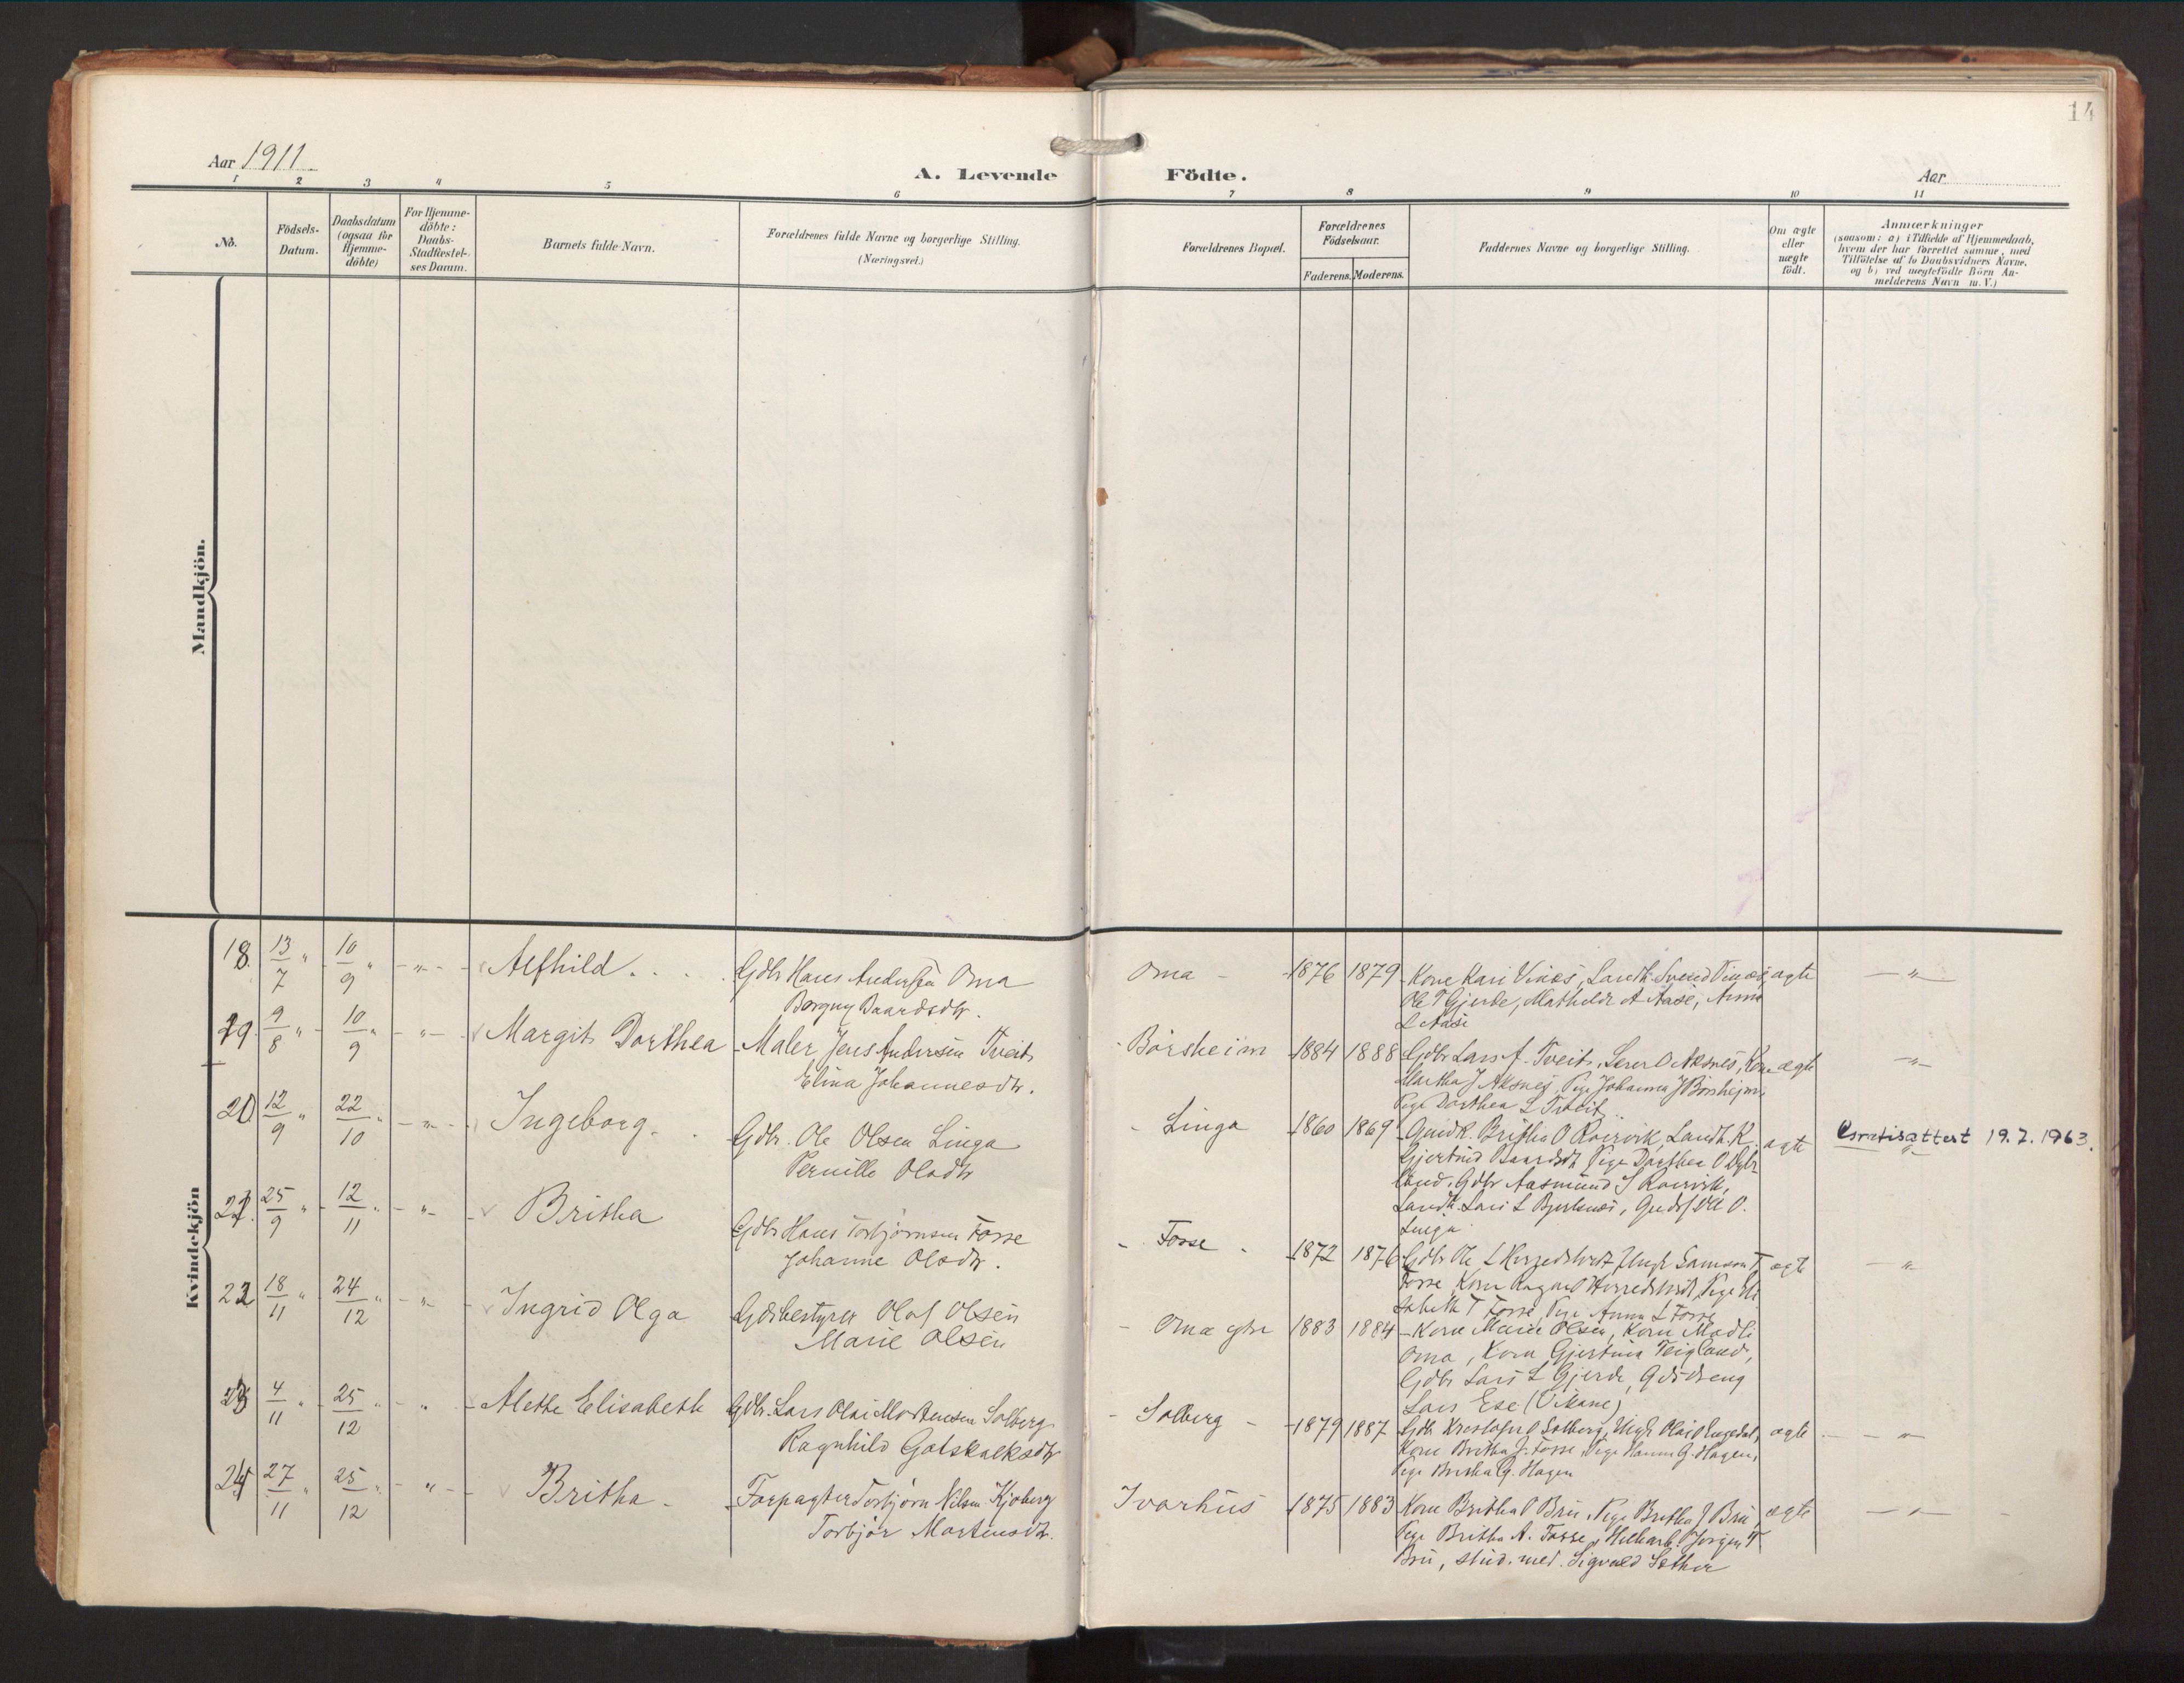 14
Aar 1911
A. Levende Födte.
Aar
1 2 3 4 5 6 7 8 9 10 11
No.
Födsels-Datum.
Daabsdatum (ogsaa for Hjemme-döbte)
For Hjemme-döbte: Daabs-Stadfæstel-ses Datum.
Barnets fulde Navn.
Forældrenes fulde Navne og borgerlige Stilling. (Næringsvei.)
Forældrenes Bopæl.
Forældrenes Födselsaar.
Faderens. Moderens.
Faddernes Navne og borgerlige Stilling.
Om ægte eller uægte födt.
Anmærkninger
(saasom: a) i Tilfælde af Hjemmedaab,
hvem der har forrettet samme, med
Tilföielse af to Daabsvidners Navne.
og b) ved uægtefödte Börn An-
melderens Navn m. V.)
Mandkjön.
Kvindekjön
18. 13/7 " 10/9 " - " - Alfhild. Gdbr Hans Andersen Oma Oma - 1876 1879 Kone Kari Vinæs, Landh. Svend Vinæs ægte - " -
Borgny Baardsdtr. Ole T Gjerde, Mathilde A Aase, Anna
L Aase
19. 9/8 " 10/9 " - " - Margit Dorthea Maler Jens Andersen Tveit Börsheim 1884 1888 Gdbr Lars A. Tveit, Lærer O Aksnes, Kone ægte - " -
Elina Johannesdtr. Martha J Aksnes, Pige Johanna J Börsheim
Pige Dorthea L Tveit
20 12/9 " 22/10 " - " - Ingeborg. Gdbr. Ole Olsen Linga - Linga 1860 1869 Gmdk. Britha O Rørvik, Landh. K. ægte Gratisattest 19.7.1963.
Pernille Olsdtr Gjertrud Baardsdt Pige Dorthea O
Gdbr Aasmund S Rørvik,
Landh. Lars L Bjerknes, Gmds Ole O.
Linga
21. 25/9 " 12/11 " - " - Britha Gdbr Hans Torbjørnsen Fosse - Fosse - 1872 1876 Gdbr Ole L Herredstvedt, Ungk Samson T ægte - " -
Johanne Olsdtr. Fosse, Kone Ragna O Herredstvedt, Pige Eli-
sabeth T Fosse, Pige Anna L Fosse
22 18/11 " 24/12 " - " - Ingrid Olga Gdsbestyrer Olaf Olsen - Oma 1883 1884 Kone Marie Olsen, Kone Madli
Marie Olsen Oma, Kone Gjertina Teigland,
Gdbr Lars L Gjerde, Gdsdreng
Lars Ese (Vikane)
23 4/11 " 25/12 " - " - Alette Elisabeth Gdbr. Lars Olai Mortensen Solberg - Solberg - 1879 1887 Gdbr Kristofer O Solberg, Ungk Olai ægte - " -
Ragnhild Gotskalksdtr Kone Britha J. Fosse, Pige Hanna G. Hagen,
Pige Britha G. Hagen
24 27/11 " 25/12 " - " - Britha - Forpagter Torbjørn Nilsen Kjoberg Ivarhus 1875 1883 Kone Britha O Bru, Pige Britha J Bru, ægte - " -
Torbjør Mortensdtr. Pige Britha A. Fosse, Jørgen T
Bru, stud. med. Sigvald